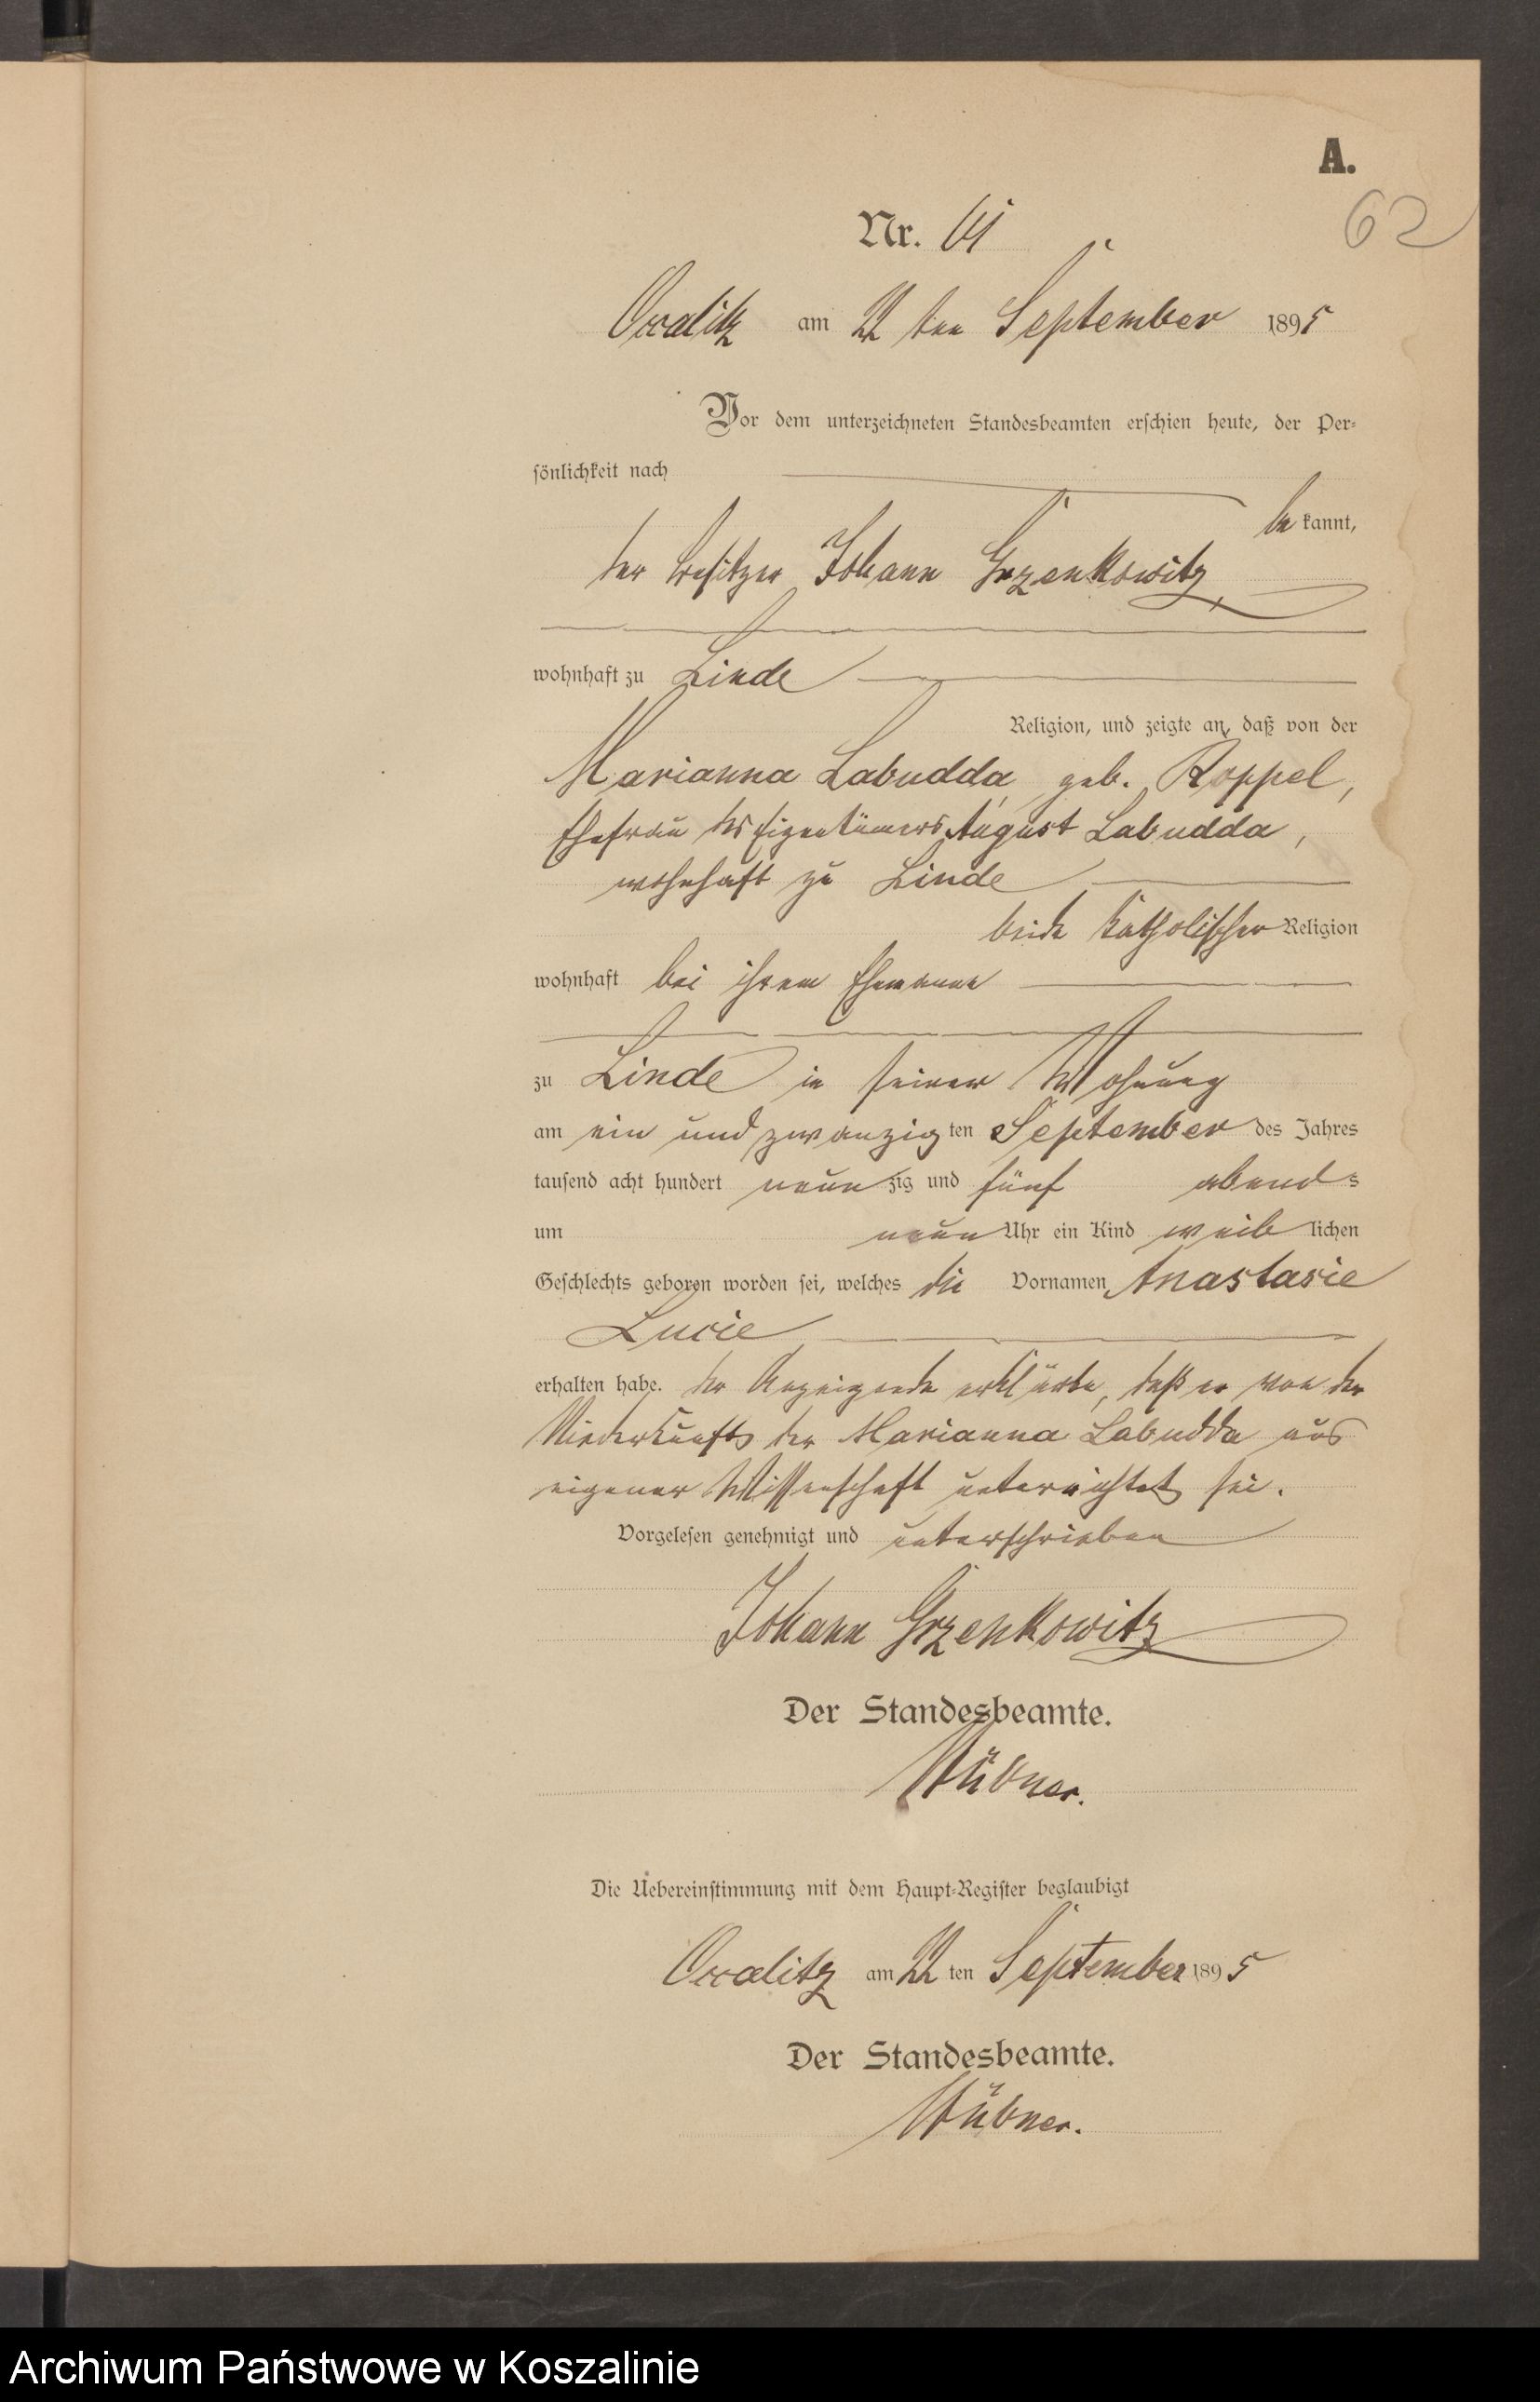 A.
62
Nr. 61
Occalitz am 22 ten September 1895
Vor dem unterzeichneten Standesbeamten erschien heute, der Per-
sönlichkeit nach
be kannt,
der Besitzer Johann Grzenkowitz,
wohnhaft zu Linde
Religion, und zeigte an, daß von der
Marianna Labudda geb. Roppel,
Ehefrau des Eigentümers August Labudda,
wohnhaft zu Linde
beide katholischer Religion
wohnhaft bei ihrem Ehemanne
zu Linde in seiner Wohnung
am ein und zwanzig ten September des Jahres
tausend acht hundert neun zig und fünf abends
um neun Uhr ein Kind weib lichen
Geschlechts geboren worden sei, welches die Vornamen Anastasie
Lucie
erhalten habe. der Anzeigende erklärte, daß er von der
Niederkunft der Marianna Labudda aus
eigener Wissenschaft unterrichtet sei.
Vorgelesen genehmigt und unterschrieben
Johann Grzenkowitz
Der Standesbeamte.
Hübner.
Die Uebereinstimmung mit dem Haupt-Register beglaubigt
Occalitz am 22 ten September 1895
Der Standesbeamte.
Hübner.
Archiwum Państwowe w Koszalinie